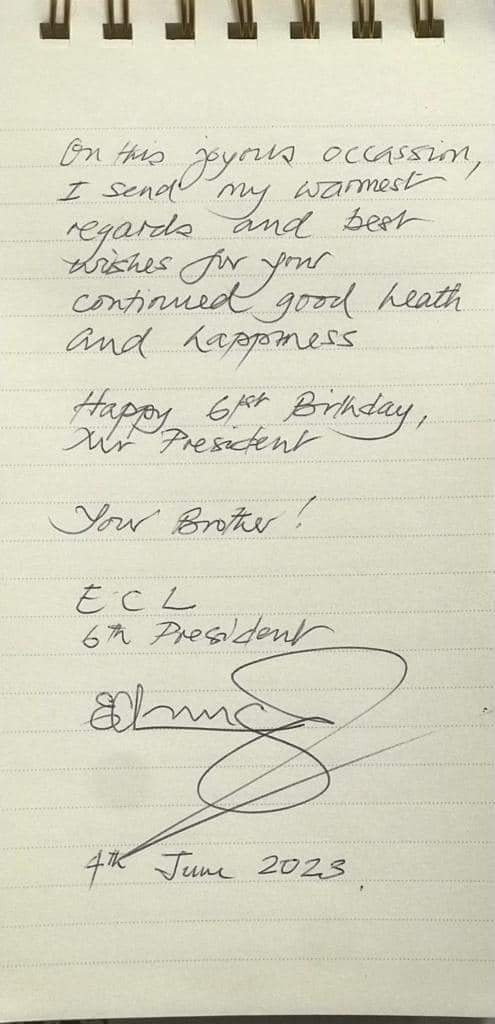 On this joyous occassion,
I send my warmest
regards and best
wishes for your
continued good heath
and happiness
Happy 61st Birthday,
Mr President
Your Brother!
E.C L
6th President
4th June 2023.